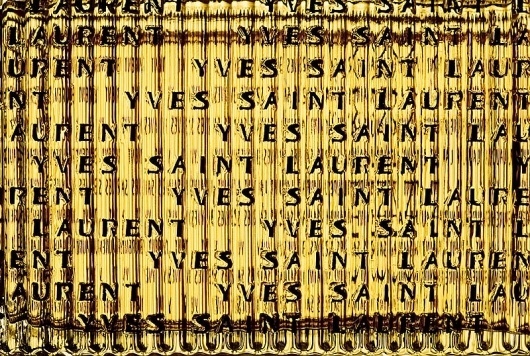 LAURENT YVES SAINT
LAURENT YVES SAINT L
URENT YVES SAINT LAUR
NT YVES SAINT LAUREN
AURENT YVES SAINT LAU
YVES SAINT LAURENT
RENT YVES SAINT LAURE
LAURENT YVES SAINT L
ENT YVES SAINT LAUREN
AURENT YVES SAINT LAU
YVES SAINT LAURENT